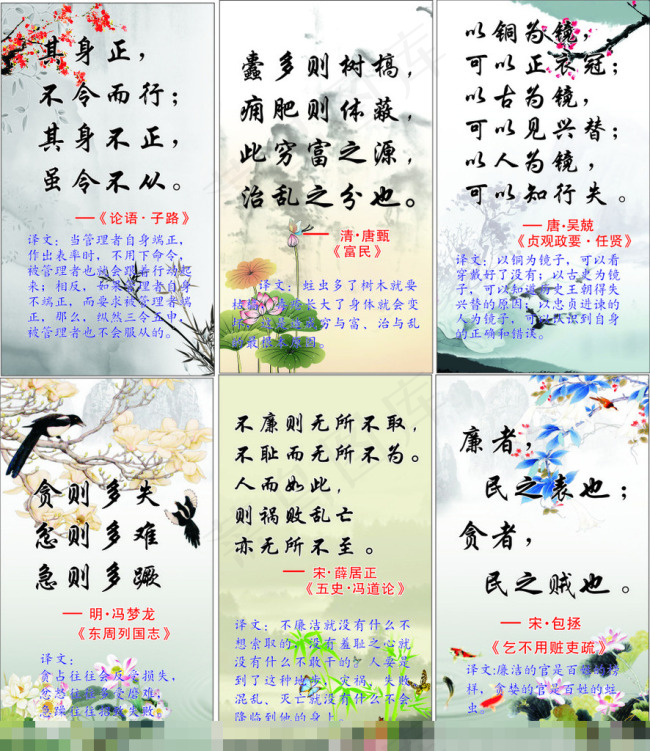 其身正，
不令而行；
其身不正，
虽令不从。
——《论语·子路》
译文：当管理者自身端正，
作出表率时，不用下命令，
被管理者也就会跟着行动起
来；相反，如果管理者自身
不端正，而要求被管理者端
正，那么，纵然三令五申，
被管理者也不会服从的。
蠹多则树槁，
痈肥则体蔽，
此穷富之源，
治乱之分也。
—— 清·唐甄
《富民》
译文：蛀虫多了树木就要
枯槁，
长大了身体就会变
方与富、治与乱
的最根本原因。
以铜为镜，
可以正衣冠；
以古为镜，
可以见兴替；
以人为镜，
可以知行失。
—— 唐·吴兢
《贞观政要·任贤》
译文：以铜为镜子，可以看
穿戴好了没有；以古史为镜
子，可以知道历史王朝得失
兴替的原因；以忠贞进谏的
人为镜子，可以认识到自身
的正确和错误。
贪则多失
忿则多难
急则多蹶
—— 明·冯梦龙
《东周列国志》
译文：
贪占往往会反受损失，
忿怒往往多受磨难，
急躁往往招致失败。
不廉则无所不取，
不耻而无所不为。
人而如此，
则祸败乱亡
亦无所不至。
—— 宋·薛居正
《五史·冯道论》
译文：不廉洁就没有什么不
想索取的，没有羞耻之心就
没有什么不敢干的。人要是
到了这种地步，灾祸、失败
混乱、灭亡就没有什么不会
降临到他的身上
廉者，
民之表也；
贪者，
民之贼也。
—— 宋·包拯
《乞不用赃吏疏》
译文:廉洁的官是百姓的榜
样，贪婪的官是百姓的蛀
虫